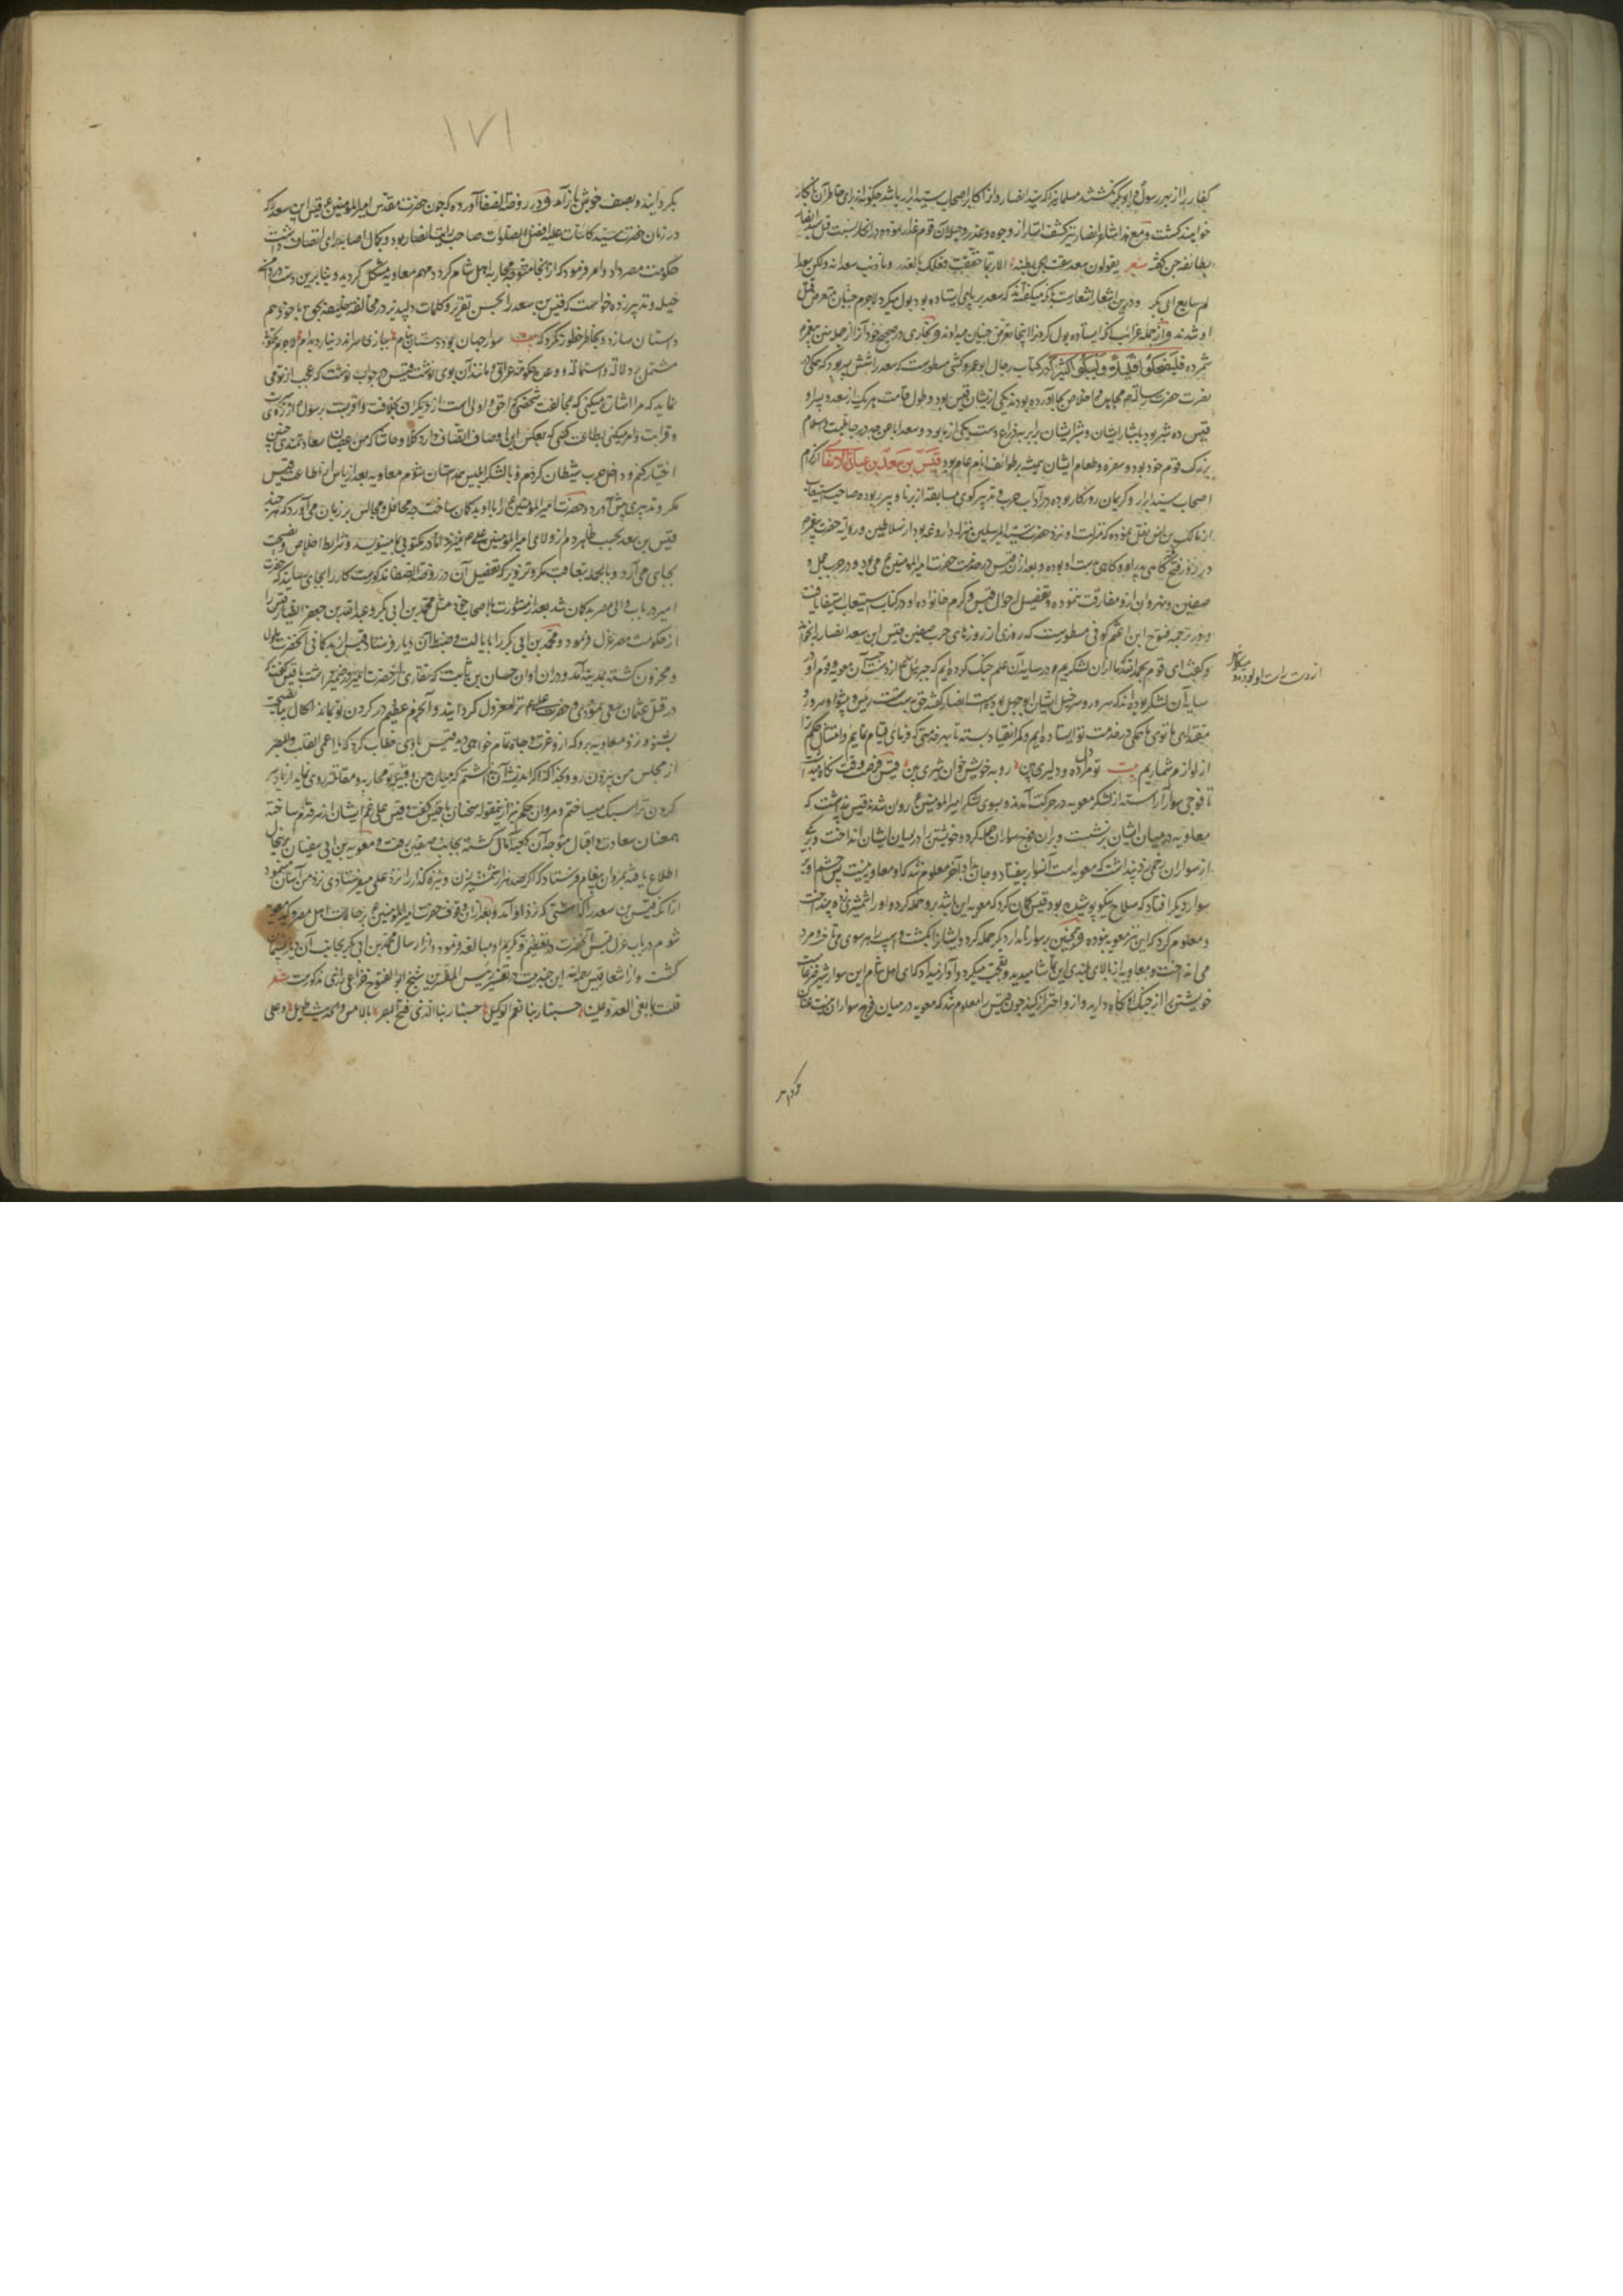 کفار را از پیر رسول و ابوبکر نکشتند مسلمانرا که سید انصار و از اکابر اصحاب سید ابرار باشد چگونه از برای خاطر آن نابکار
خواهند کشت و مع هذا شاعر انصار نیز کشف استار از وجوه و عذر و حیله آن قوم غدار نموده و در انکار نسبت قتل سعد
بطایفه جن گفته شعر یقولون سعد شقت الجن بطنه الا ربما حققت فعلک بالغدر و ما ذنب سعد انه ولکن سعدا
لم یبایع ابی بکر و درین اشعار اشعار است بآنکه میگفته‌اند که سعد بر پای ایستاده بود بول میکرد لاجرم جنیان متعرض قتل
او شدند و از جمله غرائب آنکه ایستاده بول کردنرا اینجا تعرض جنیان میدانند و بخاری در صحیح خود آنرا از جمله سنن پیغمبر
شمرده فلیضحکوا قلیلا و لیبکوا کثیرا و در کتاب رجال ابو عمرو کشی مسطورست که سعد را شش پسر بود که همگی در
نصرت حضرت رسالت مجاهده و اخلاص بجا آورده بودند یکی از ایشان قیس بود و طول قامت هر یک از سعد و پسر او
قیس ده شبر بود بشبار ایشان و شبر ایشان برابر بذراع دست یکی از ما بود و سعد اباعن جد در جاهلیت و اسلام
بزرگ قوم خود بود و سفره و طعام ایشان همیشه بر طوایف انام عام بود قیس بن سعد بن عبادة الانصاری از کرام
اصحاب سید ابرار و کریمان روزگار بوده در آداب حرب و تدبیر گوی مسابقه از برنا و پیر ربوده صاحب استیعاب
از مالک بن انس نقل نموده که منزلت او نزد حضرت سید المرسلین بمنزله داروغه بود از سلاطین و رایة حضرت پیغمبر
در روز فتح مکه گاهی به پدر او و گاهی بدست او بوده و بعد از آن قیس در خدمت حضرت امیر المؤمنین ع می بود و در حرب جمل و
صفین و نهروان ازو مفارقت ننموده و تفصیل احوال قیس و کرم خانواده او در کتاب استیعاب استیفا یافت
و در ترجمه فتوح ابن اعثم کوفی مسطورست که روزی از روزهای حرب صفین قیس ابن سعد انصار را بخواند
و گفت ای قوم بحمد الله که ما از آن لشکریم و در سایه آن علم جنگ کرده‌ایم که جبرئیل ع از دست آن معویه و قوم او در
از دست راست او بود و میکائیل
سایه آن لشکر بوده‌اند که سرور و سرخیل ایشان ابوجهل بوده است انصار گفتند حق بدست تست رئیس و پیشوا و سرور و
مقتدای ما توی ما همگی در خدمت تو ایستاده‌ایم و کمر انقیاد بسته تا بهر خدمتی که فرمای قیام نمایم و امتثال حکم ترا
از لوازم شماریم بیت تو مردل ده و دلیری بین رو به خویش خوان شیری بین قیس فرصت وقت نگاه میداشت
تا فوجی سوار آراسته از لشکر معویه در حرکت آمدند و بسوی لشکر امیر المؤمنین ع روان شدند قیس پنداشت که
معاویه در میان ایشان برنشست و بر آن فوج سواران حمله کرد و خویشتن را در میان ایشان انداخت و یکی
از سواران زخمی زد پنداشت که معویه است آنسوار بیفتاد و جان داد آخر معلوم شد که او معاویه نیست پس چشم او بر
سوار دیگر افتاد که سلاح نیکو پوشیده بود قیس گمان کرد که معویه این باشد برو حمله کرد و او را شمشیری زد و بینداخت
و معلوم کرد که این نیز معویه نبوده و همچنین بر سوار نامدار دیگر حمله کرد و ایشانرا بکشت و اسپ را بهر سوی می تاخت و مرد
می انداخت و معاویه از بالای بلندی این تماشا میدید و تعجب میکرد و آواز میداد که ای اهل شام این سوار شیر
خویشتن را از جنگ او نگاه دارید و ازو احتراز کنید چون قیس را معلوم شد که معویه در میان فوج سواران نیست عنان
بگردانید
۱۷۱
بگردانید و بصف خویش باز آمد و در روضة الصفا آورده که چون حضرت مقدس امیر المؤمنین ع قیس ابن سعد را که
در زمان حضرت سید کاینات علیه افضل الصلوات صاحب رایت انصار بود و بکمال اصابت رای اتصاف داشت
حکومت مصر داد و امر فرمود که از آنجا متوجه محاربه اهل شام گردد مهم معاویه مشکل گردید و بنابرین دست در دامن
حیله و تدبیر زده خواست که قیس بن سعد را بحسن تقریر و کلمات دلپذیر در مخالفت خلیفه بحق با خود هم
داستان سازد و بخاطر خطور نکرد که بیت سوار جهان پور دستان سام ببازی سر اندر نیارد بدام لاجرم مکتوبی
مشتمل بر دلالت و استمالت و وعده حکومت عراق و مانند آن بوی نوشت قیس در جواب نوشت که عجب از تو می
نماید که مرا اشارت میکنی که مخالفت شخصی که احق و اولی است از دیگران بخلافت و اقرب است برسول از روی
و قرابت و امر میکنی بطاعت کسی که بعکس این اوصاف اتصاف دارد کلا و حاشا که من عصیان سعادتمندی چنین
اختیار کنم و داخل حزب شیطان گردم و با لشکر ابلیس همداستان شوم معاویه بعد از یاس از اطاعت قیس
مکر و تدبیری پیش آورد و حضرت امیر المؤمنین ع را باو بدگمان ساخت چه در محافل و مجالس بر زبان می آورد که هر چند
قیس بن سعد بحسب ظاهر دم از ولای امیر المؤمنین علی میزند اما در مکتوبی بما مینویسد و شرایط اخلاص و نصیحت
بجای می آرد و بالجمله بعاقبت مکر و تزویر که تفصیل آن در روضة الصفا مذکورست کار را بجای رسانید که حضرت
امیر در باب والی مصر بدگمان شد بعد از مشورت با اصحاب خود مثل محمد بن ابی بکر و عبد الله بن جعفر الطیار قیس را
از حکومت مصر عزل فرمود و محمد بن ابی بکر را بایالت و ضبط آن دیار فرستاد قیس از بدگمانی آنحضرت ملول
و محزون گشته بمدینه آمد و در آن اوان حسان بن ثابت که نقاری از حضرت امیر در ضمیر داشت با قیس گفت که
در قتل عثمان سعی نمودی و حضرت علی ترا معزول گردانید و آن جرم عظیم در گردن تو بماند اکنون نصیحت
بشنو و نزد معاویه برو که ازو عزت و جاه تمام خواهی دید قیس با وی خطاب کرد که یا اعمی القلب والبصر
از مجلس من بیرون رو و بخدا که اگر اندیشه آن نداشتم که میان من و قبیله تو محاربه و مقاتله روی نماید از بار سر
گردن ترا سبک میساختم و مروان حکم نیز ازین مقوله سخنان با قیس گفت و قیس علی رغم ایشان از سر قدم ساخته
همعنان سعادت و اقبال متوجه آن کعبه آمال گشته بجانب صفین رفت و معویه بن ابی سفیان برین حال
اطلاع یافته بمروان پیغام فرستاد که اگر صد هزار شمشیرزن و نیزه گذار را نزد علی میفرستادی نزد من آسان مینمود
از آنکه قیس بن سعد را گذاشتی که نزد او آمد و بعد از آن وقوف حضرت امیر المؤمنین ع بر حالات اهل مصر و کید معویه
شوم در باب عزل قیس آنحضرت در تعظیم و تکریم او مبالغه فرموده و از ارسال محمد بن ابی بکر بجانب آن دیار پشیمان
گشت و از اشعار قیس رحمه الله این چند بیت در تفسیر رئیس المفسرین شیخ ابو الفتوح خزاعی رازی مذکورست شعر
قلت لما بغی العدو علینا حسبنا ربنا نعم الوکیل حسبنا ربنا الذی فتح البصرة بالامس والحدیث طویل و علی